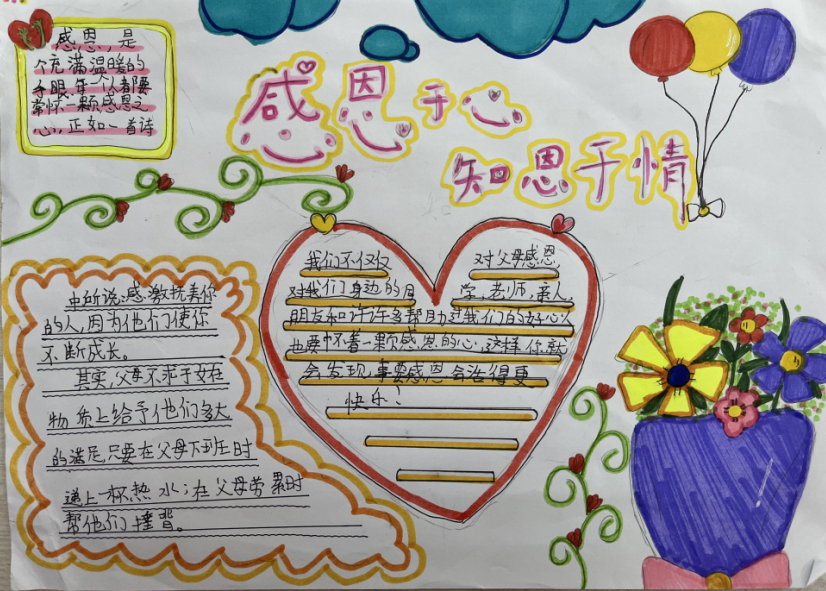 感恩,是
个充满温暖的
字眼,每个人都要
常怀一颗感恩之
心,正如一首诗
感恩于心
知恩于情
中所说:感激抚养你
的人,因为他们使你
不断成长。
其实,父母不求子女在
物质上给予他们多大
的满足,只要在父母下班时
递上一杯热水;在父母劳累时
帮他们捶背。
我们不仅仅 对父母感恩,
对我们身边的同学,老师,亲人,
朋友和许许多帮助过我们的好心人
也要怀着一颗感恩的心,这样你就
会发现享感恩会活得更
快乐!